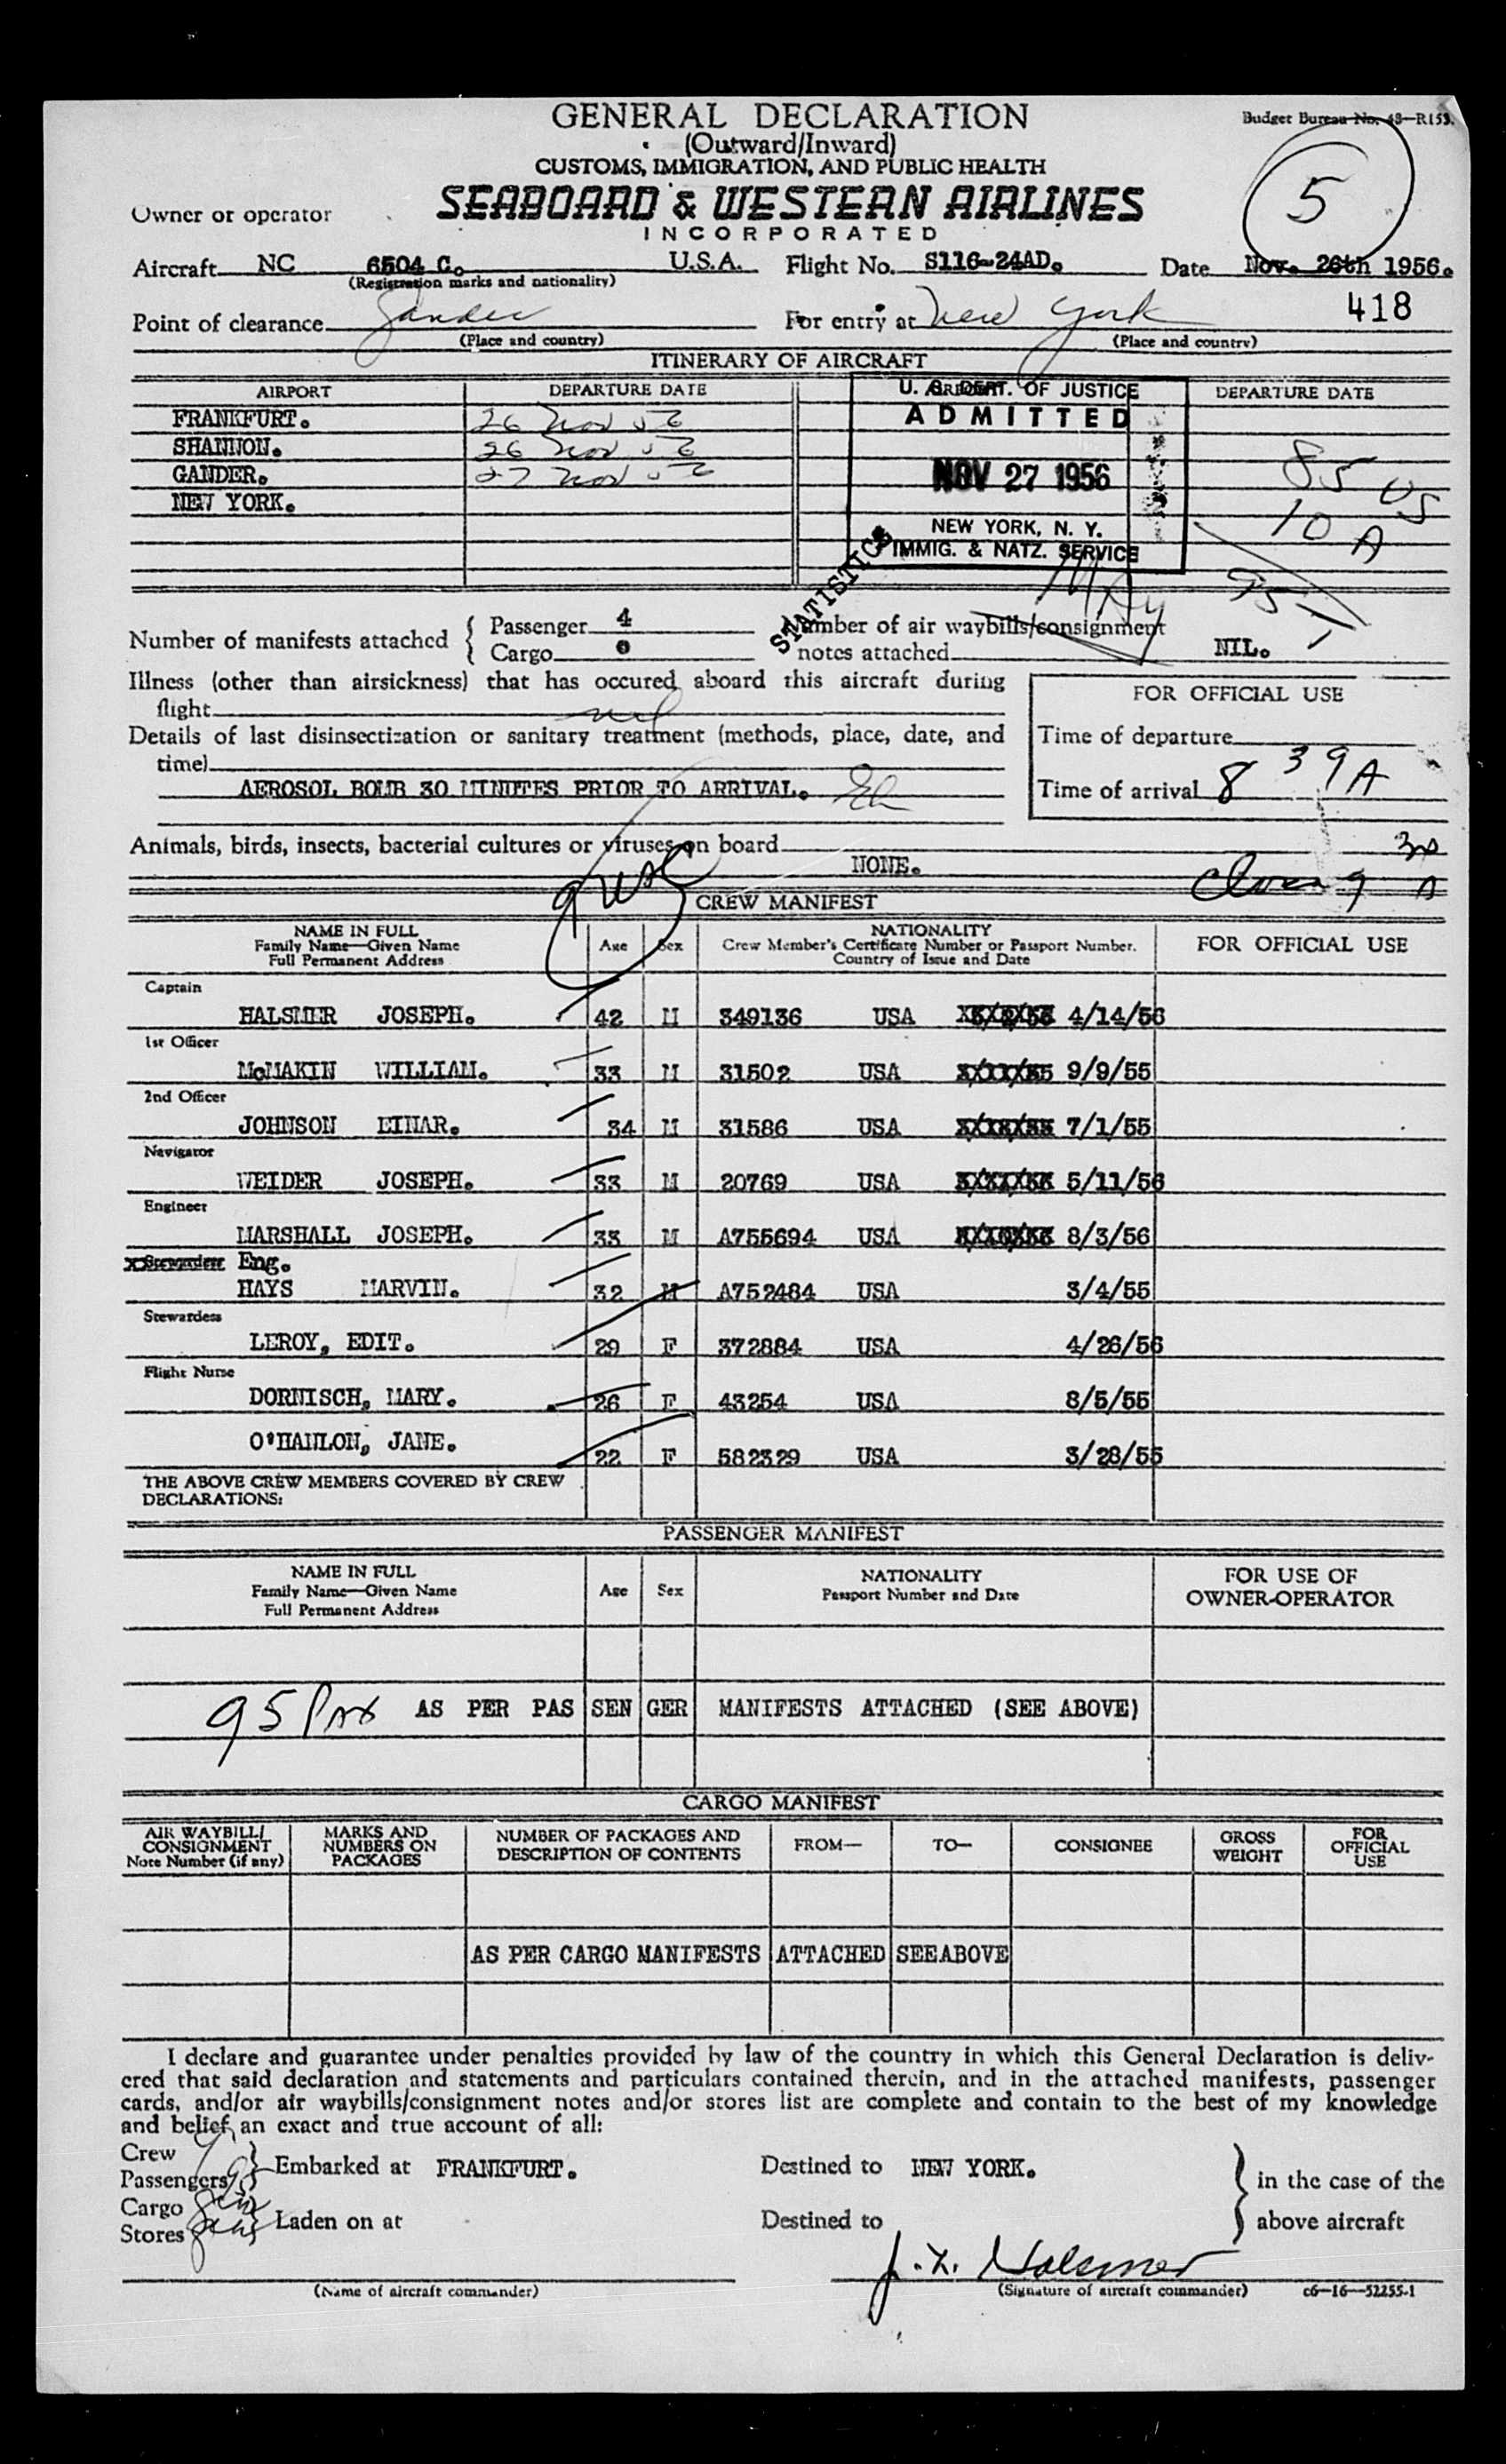 GENERAL DECLARATION
Budget Bureau No. 43—R153.
(Outward/Inward)
CUSTOMS, IMMIGRATION, AND PUBLIC HEALTH
5
SEABOARD & WESTERN AIRLINES
Owner or operator
INCORPORATED
Aircraft NC 6504 C. U.S.A. Flight No. S116-24AD. Date Nov. 26th 1956.
(Registration marks and nationality)
418
Point of clearance Gander For entry at New York
(Place and country) (Place and country)
ITINERARY OF AIRCRAFT
AIRPORT DEPARTURE DATE AIRPORT DEPARTURE DATE
U. S. DEPT. OF JUSTICE
ADMITTED
NOV 27 1956
NEW YORK, N. Y.
IMMIG. & NATZ. SERVICE
STATISTICS
FRANKFURT. 26 Nov 56
SHANNON. 26 Nov 56
GANDER. 27 Nov 56
NEW YORK.
85 US
10 A
95
Number of manifests attached { Passenger 4 Number of air waybills/consignment
Cargo 0 notes attached NIL.
Illness (other than airsickness) that has occured aboard this aircraft during
flight nil
FOR OFFICIAL USE
Details of last disinsectization or sanitary treatment (methods, place, date, and
time)
Time of departure
AEROSOL BOMB 30 MINUTES PRIOR TO ARRIVAL.
Time of arrival 8 39 A
Animals, birds, insects, bacterial cultures or viruses on board
NONE.
CREW MANIFEST
NAME IN FULL
Family Name—Given Name
Full Permanent Address
Age Sex
NATIONALITY
Crew Member's Certificate Number or Passport Number.
Country of Issue and Date
FOR OFFICIAL USE
Captain
HALSMER JOSEPH. 42 M 349136 USA 4/14/56
1st Officer
McMAKIN WILLIAM. 33 M 31502 USA 9/9/55
2nd Officer
JOHNSON EINAR. 34 M 31586 USA 7/1/55
Navigator
WEIDER JOSEPH. 33 M 20769 USA 5/11/56
Engineer
MARSHALL JOSEPH. 33 M A755694 USA 8/3/56
Stewardess Eng.
HAYS MARVIN. 32 M A752484 USA 3/4/55
Stewardess
LEROY, EDIT. 29 F 372884 USA 4/26/56
Flight Nurse
DORNISCH, MARY. 26 F 43254 USA 8/5/55
O'HANLON, JANE. 22 F 582329 USA 3/28/55
THE ABOVE CREW MEMBERS COVERED BY CREW
DECLARATIONS:
PASSENGER MANIFEST
NAME IN FULL
Family Name—Given Name
Full Permanent Address
Age Sex
NATIONALITY
Passport Number and Date
FOR USE OF
OWNER-OPERATOR
95 Pax AS PER PAS SEN GER MANIFESTS ATTACHED (SEE ABOVE)
CARGO MANIFEST
AIR WAYBILL/
CONSIGNMENT
Note Number (if any)
MARKS AND
NUMBERS ON
PACKAGES
NUMBER OF PACKAGES AND
DESCRIPTION OF CONTENTS
FROM— TO— CONSIGNEE
GROSS
WEIGHT
FOR
OFFICIAL
USE
AS PER CARGO MANIFESTS ATTACHED SEEABOVE
I declare and guarantee under penalties provided by law of the country in which this General Declaration is deliv-
ered that said declaration and statements and particulars contained therein, and in the attached manifests, passenger
cards, and/or air waybills/consignment notes and/or stores list are complete and contain to the best of my knowledge
and belief an exact and true account of all:
Crew 9
Passengers 95 } Embarked at FRANKFURT. Destined to NEW YORK. } in the case of the
Cargo
Stores } Laden on at Destined to above aircraft
J. F. Halsmer
(Name of aircraft commander) (Signature of aircraft commander) c6—16—52255-1